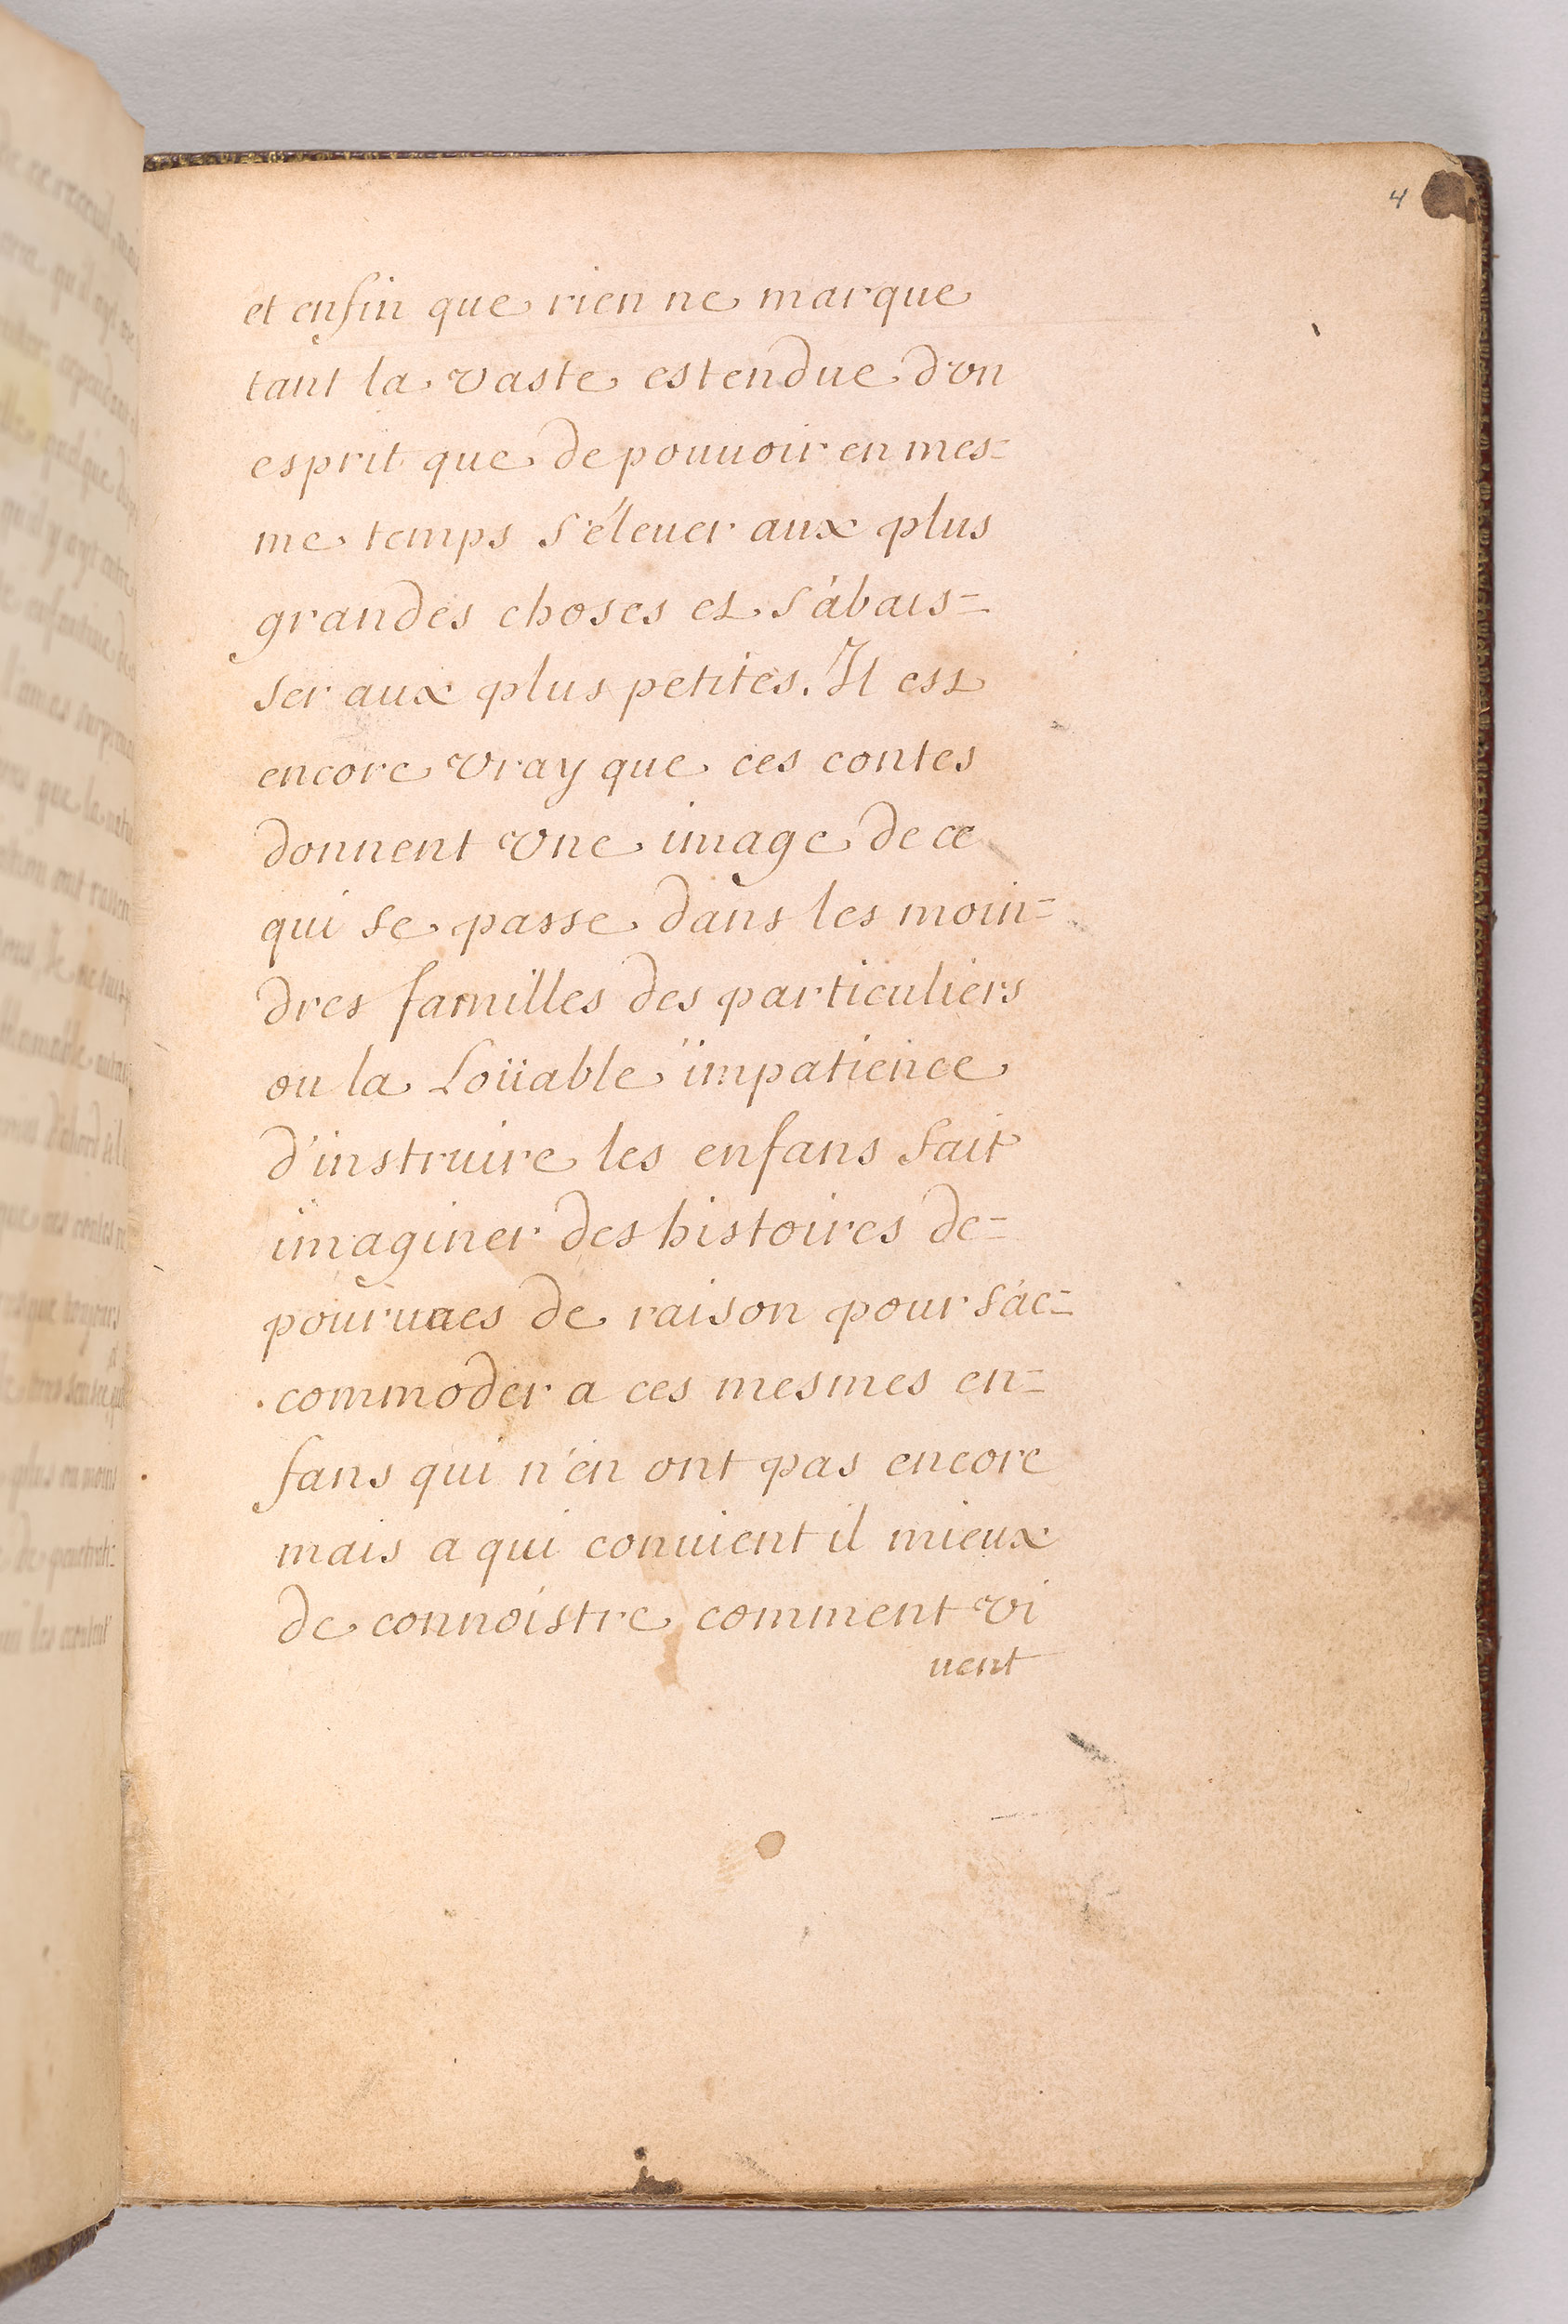 4
et enfin que rien ne marque
tant la vaste estendue d'vn
esprit que de pouuoir en mes=
me temps s'éleuer aux plus
grandes choses et s'abais=
ser aux plus petites. Il est
encore vray que ces contes
donnent vne image de ce
qui se passe dans les moin=
dres familles des particuliers
ou la Loüable impatience
d'instruire les enfans fait
imaginer des histoires de=
pouruues de raison pour s'ac=
commoder a ces mesmes en=
fans qui n'en ont pas encore
mais a qui conuient il mieux
de connoistre comment vi
uent